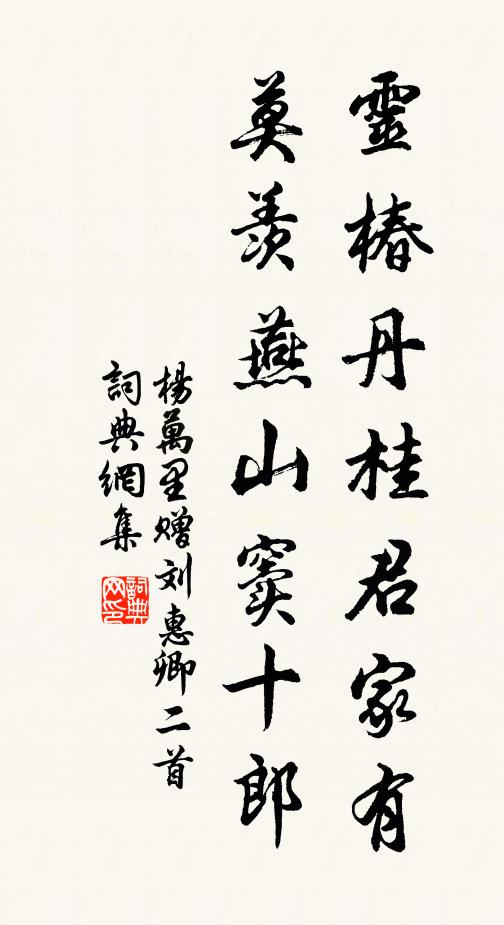 靈椿丹桂君家有
莫羨燕山竇十郎
楊萬里贈刘惠卿二首
詞典網集
詞典
网印